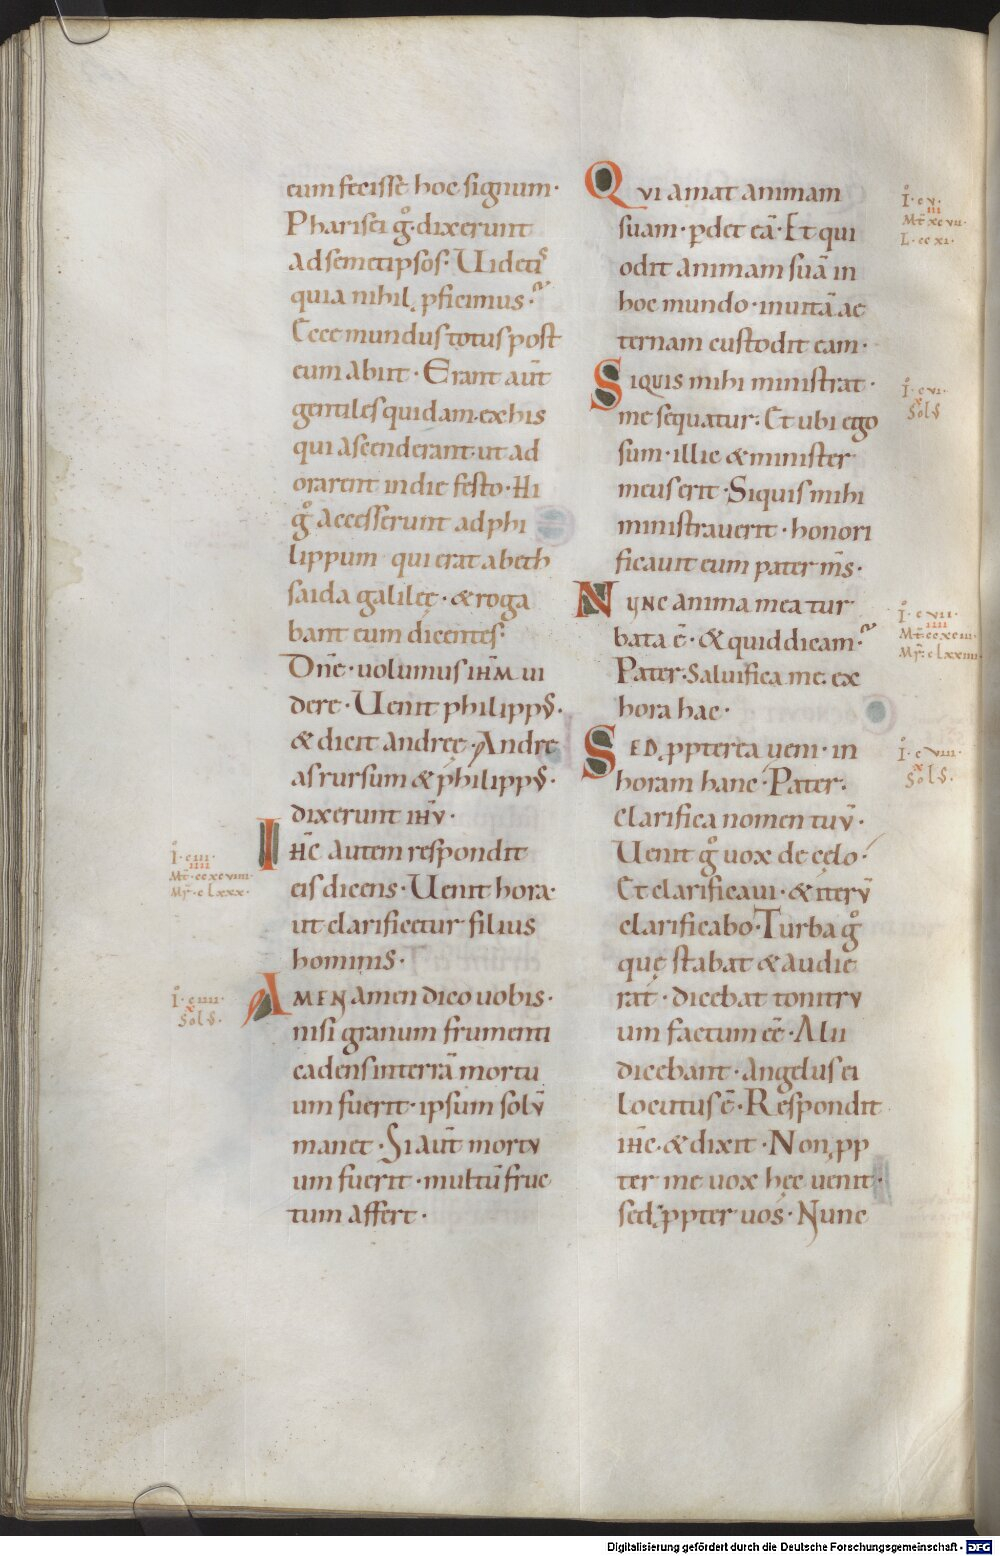 eum fecisse hoc signum·
Pharisei g̊·dixerunt
ad semetipsos· Uidetis
quia nihil p̱ficimus·
Ecce mundus totus post
eum abiit· Erant aut̄
gentiles quidam ex his
qui ascenderant· ut ad
orarent in die festo· Hi
g̊ accesserunt ad phi
lippum qui erat a beth
saida galileę· & roga
bant eum dicentes·
Dn̄e· uolumus ih̄m ui
dere· Uenit philippꝰ·
& dicit andreę· Andre
as rursum & philippꝰ·
dixerunt ih̄u·
Ih̄c autem respondit
eis dicens· Uenit hora·
ut clarificetur filius
hominis·
Amen amen dico uobis·
nisi granum frumenti
cadens in terrā mortu
um fuerit· ipsum solū
manet· Si aut̄ mortu
um fuerit· multū fruc
tum affert·
I· ciii·
iiii
Mt̄· ccxcviiii·
Mr̄· clxxx·
I· ciiii·
x
Sol S·
Qui amat animam
suam· ꝑdet eā· Et qui
odit animam suā in
hoc mundo· in uitā ae
ternam custodit eam·
Siquis mihi ministrat·
me sequatur· Et ubi ego
sum· illic & minister
meus erit· Siquis mihi
ministrauerit· honori
ficauit eum pater m̄s·
Nunc anima mea tur
bata ē· & quid dicam·
Pater· Saluifica me ex
hora hac·
Sed p̱pterea ueni· in
horam hanc· Pater·
clarifica nomen tuū·
Uenit g̊ uox de cęlo·
Et clarificaui· & iterū
clarificabo· Turba g̊
quę stabat & audie
rat· dicebat tonitru
um factum eē· Alii
dicebant· Angelus ei
locutus ē· Respondit
ih̄c· & dixit· Non p̱p
ter me uox hęc uenit·
sed p̱pter uos· Nunc
I· cv·
iii
Mt̄· xcvii·
L· ccxi·
I· cvi·
x
Sol S
I· cvii·
iiii
Mt̄· ccxciii·
Mr̄· clxxiiii
I· cviii·
x
Sol S·
Digitalisierung gefördert durch die Deutsche Forschungsgemeinschaft - DFG